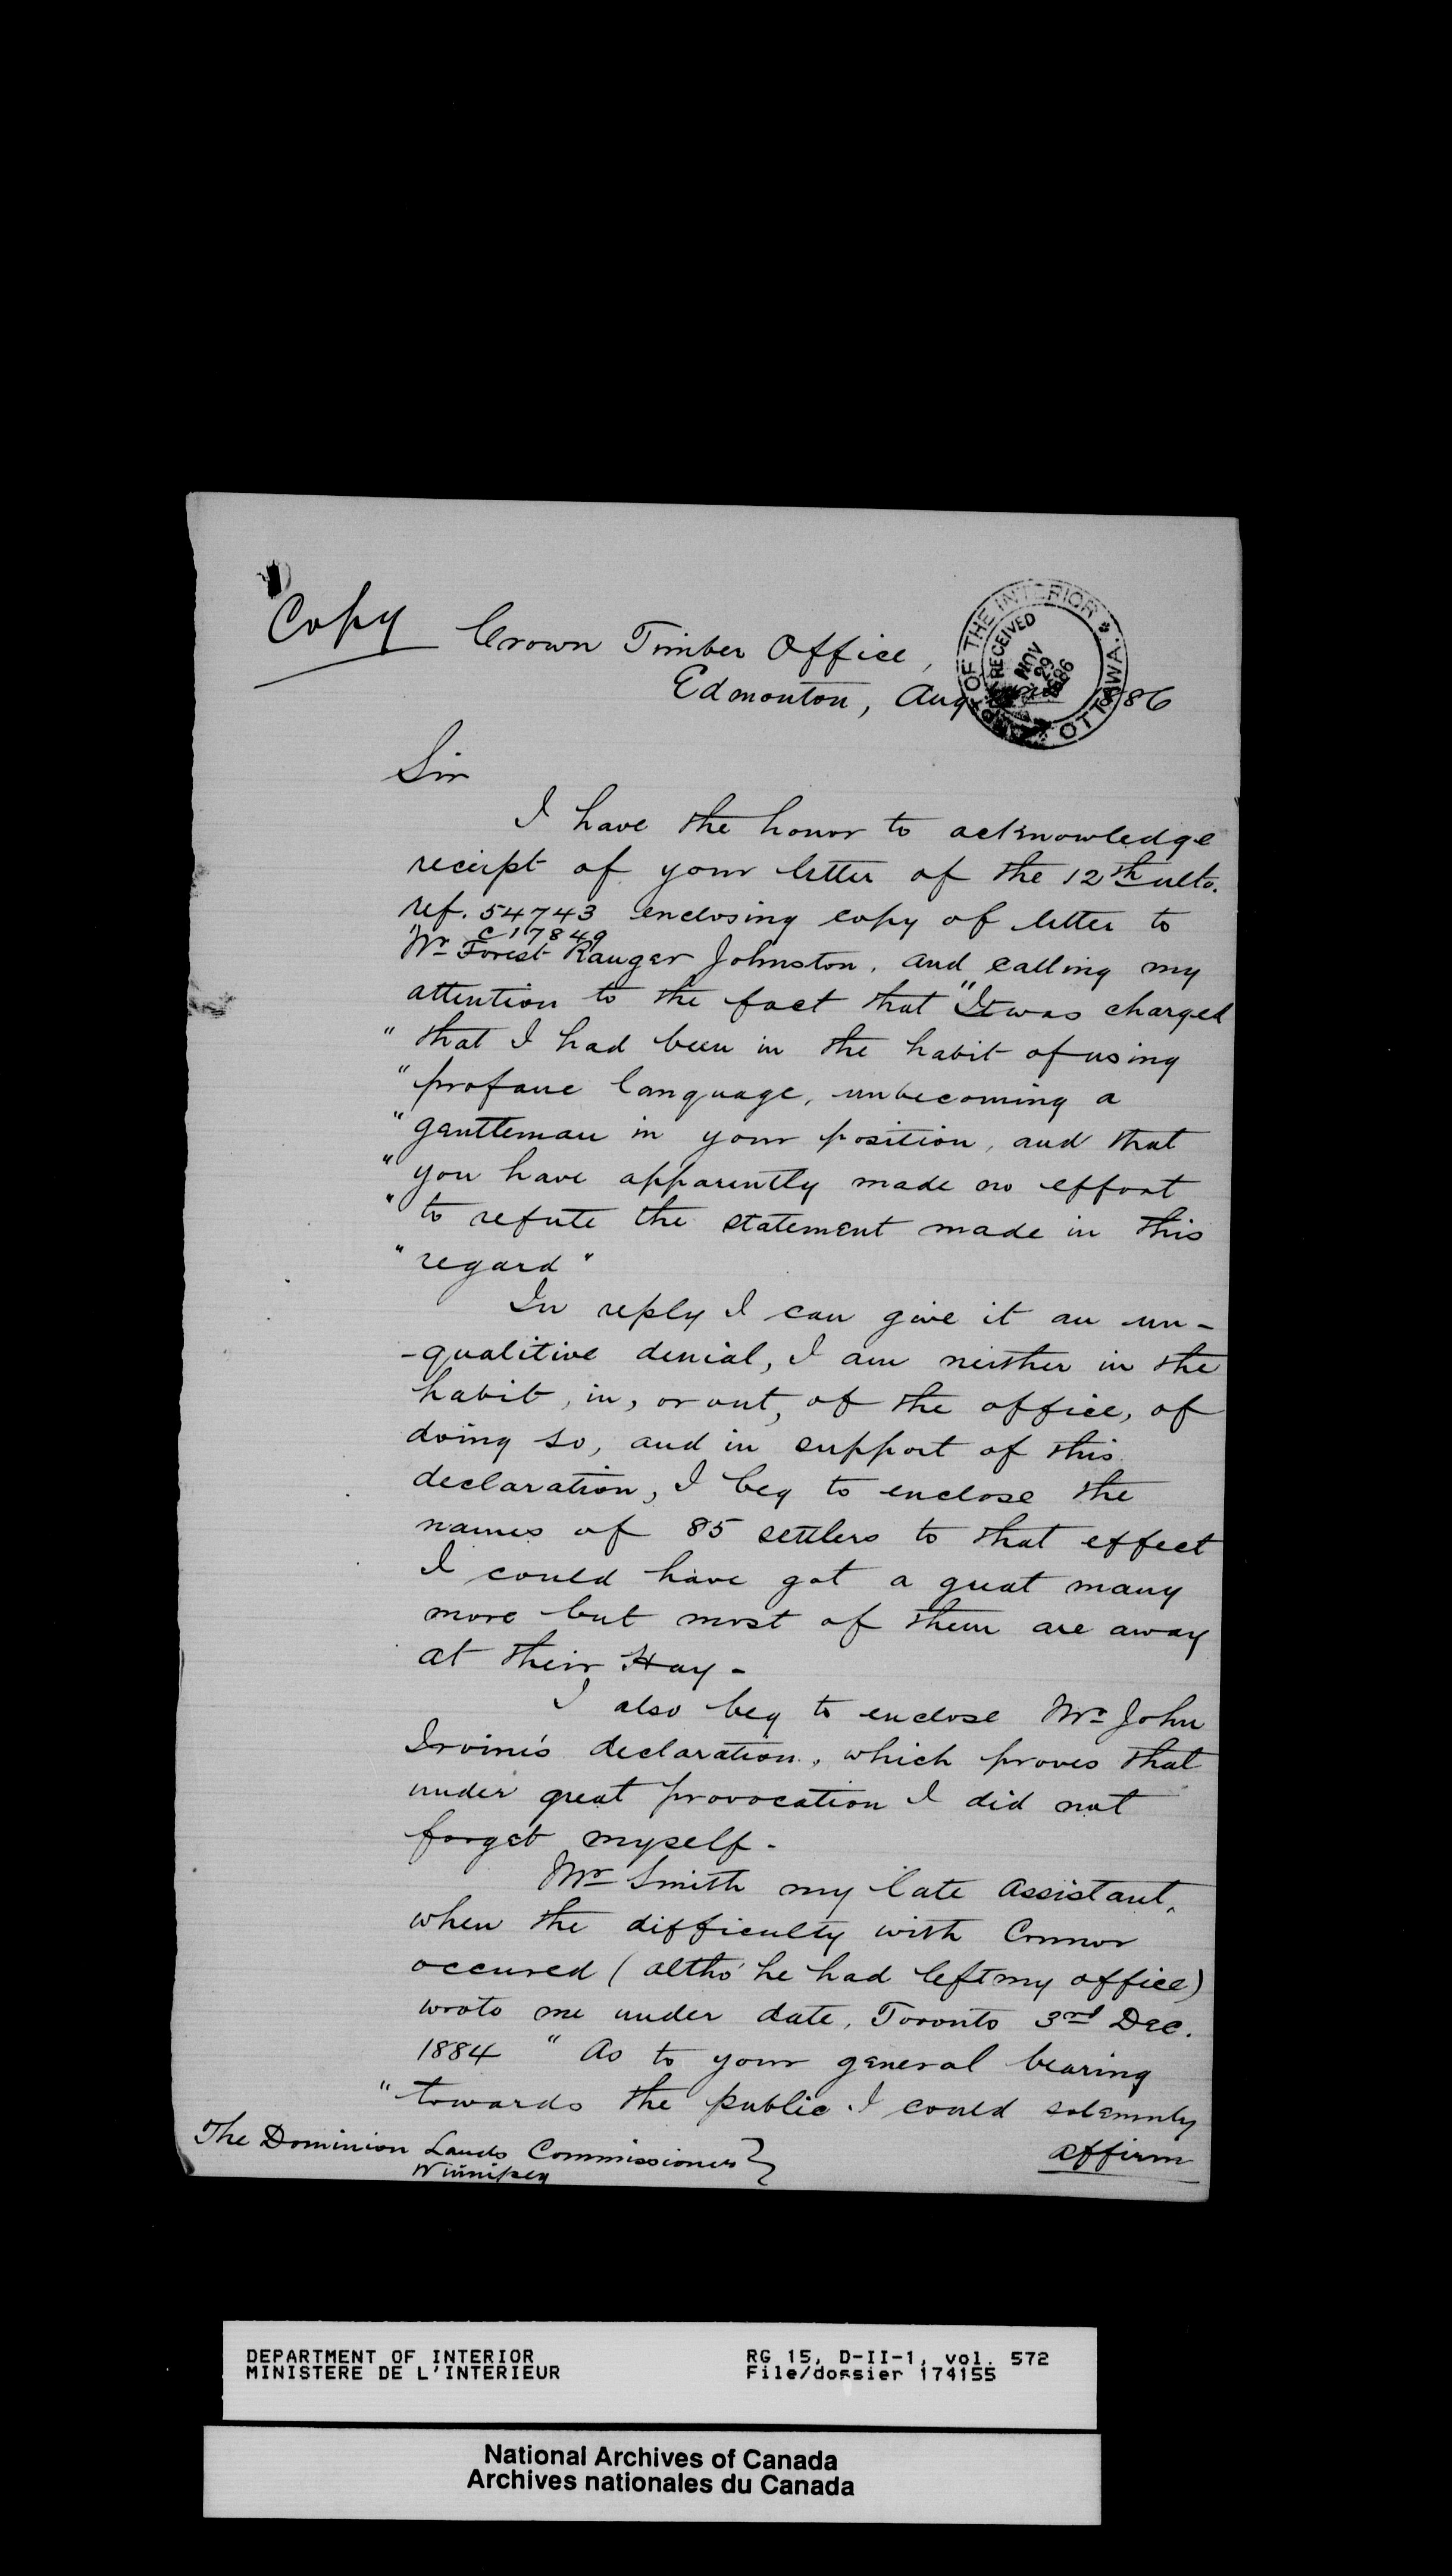 Copy
Crown Timber Office,
Edmonton, Aug 1886
OF THE INTERIOR * OTTAWA.
RECEIVED
NOV
29
1886
Sir
I have the honor to acknowledge
receipt of your letter of the 12th ulto.
ref. 54743 enclosing copy of letter to
C17849
Mr Forest Ranger Johnston. and calling my
attention to the fact that "It was charged
" that I had been in the habit of using
" profane language, unbecoming a
" gentleman in your position, and that
" you have apparently made no effort
" to refute the statement made in this
" regard "
In reply I can give it an un-
-qualitive denial, I am neither in the
habit, in, or out, of the office, of
doing so, and in support of this
declaration, I beg to enclose the
names of 85 settlers to that effect
I could have got a great many
more but most of them are away
at their Hay -
I also beg to enclose Mr John
Irvine's declaration, which proves that
under great provocation I did not
forget myself -
Mr Smith my late Assistant,
when the difficulty with Connor
occured (altho' he had left my office)
wrote me under date, Toronto 3rd Dec.
1884 " As to your general bearing
" towards the public I could solemnly
affirm
The Dominion Lands Commissioner }
Winnipeg
DEPARTMENT OF INTERIOR
MINISTERE DE L'INTERIEUR
RG 15, D-II-1, vol. 572
File/dossier 174155
National Archives of Canada
Archives nationales du Canada